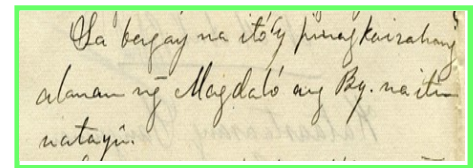 Sa bagay na itó'y pinagkaisahang
alanan ng̃ Magdaló ang By. na itin
natayô.